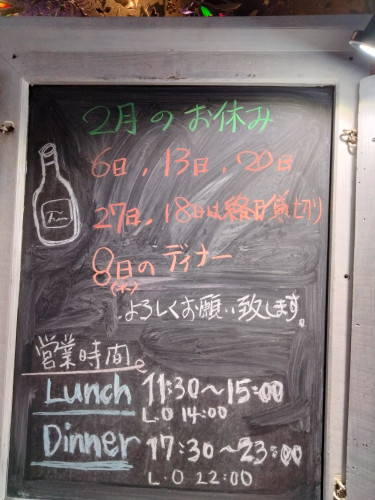 2月のお休み
6日、13日、20日
27日、18日は終日貸切り
8日のディナー
(木)
よろしくお願い致します。
営業時間。
Lunch 11:30〜15:00
L.O 14:00
Dinner 17:30〜23:00
L.O 22:00